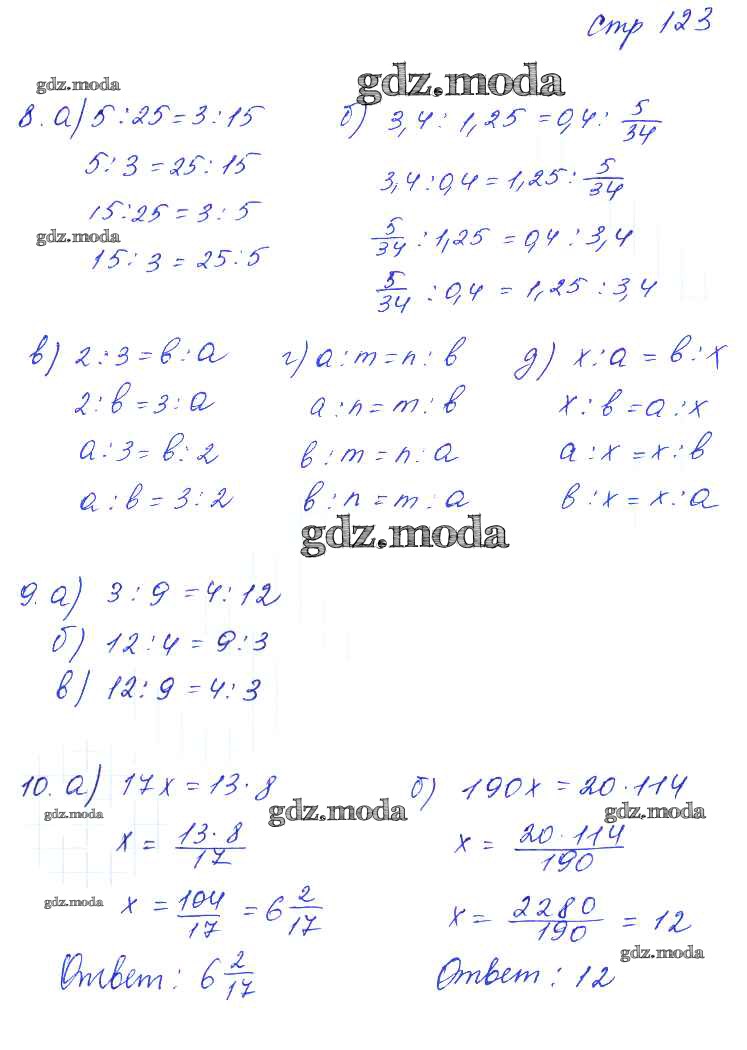 стр 123
gdz.moda
gdz.moda
8. а) 5:25=3:15
5:3=25:15
15:25=3:5
gdz.moda
15:3=25:5
б) 3,4:1,25=0,4:5/34
3,4:0,4=1,25:5/34
5/34:1,25=0,4:3,4
5/34:0,4=1,25:3,4
в) 2:3=в:а
2:в=3:а
а:3=в:2
а:в=3:2
г) а:m=n:в
а:n=m:в
в:m=n:а
в:n=m:а
д) х:а=в:х
х:в=а:х
а:х=х:в
в:х=х:а
gdz.moda
9. а) 3:9=4:12
б) 12:4=9:3
в) 12:9=4:3
10. а) 17х=13·8
gdz.moda
gdz.moda
х=13·8/17
gdz.moda
х=104/17=6 2/17
Ответ: 6 2/17
б) 190х=20·114
gdz.moda
х=20·114/190
х=2280/190=12
gdz.moda
Ответ: 12